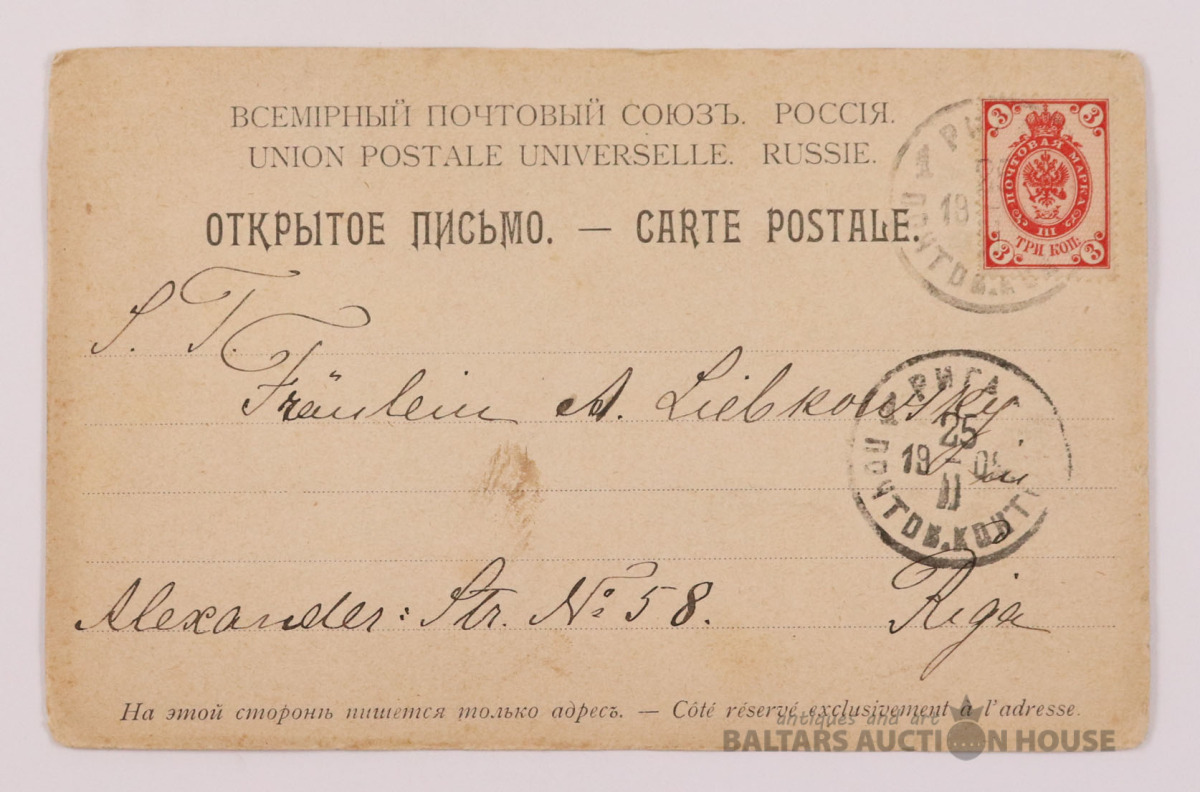 ВСЕМІРНЫЙ ПОЧТОВЫЙ СОЮЗЪ. РОССІЯ.
UNION POSTALE UNIVERSELLE. RUSSIE.
ОТКРЫТОЕ ПИСЬМО. — CARTE POSTALE.
3 3
ПОЧТОВАЯ МАРКА
III
ТРИ КОП.
3 3
1 РИ
19
ПОЧТОВ. КО
S. T.
Fräulein A. Liebkowsky
РИГА
25
19 - 0
II
ПОЧТОВ. КОНТ
in
Alexander: Str. № 58. Riga
На этой сторонѣ пишется только адресъ. — Côté réservé exclusivement à l'adresse.
antiques and art
BALTARS AUCTION HOUSE